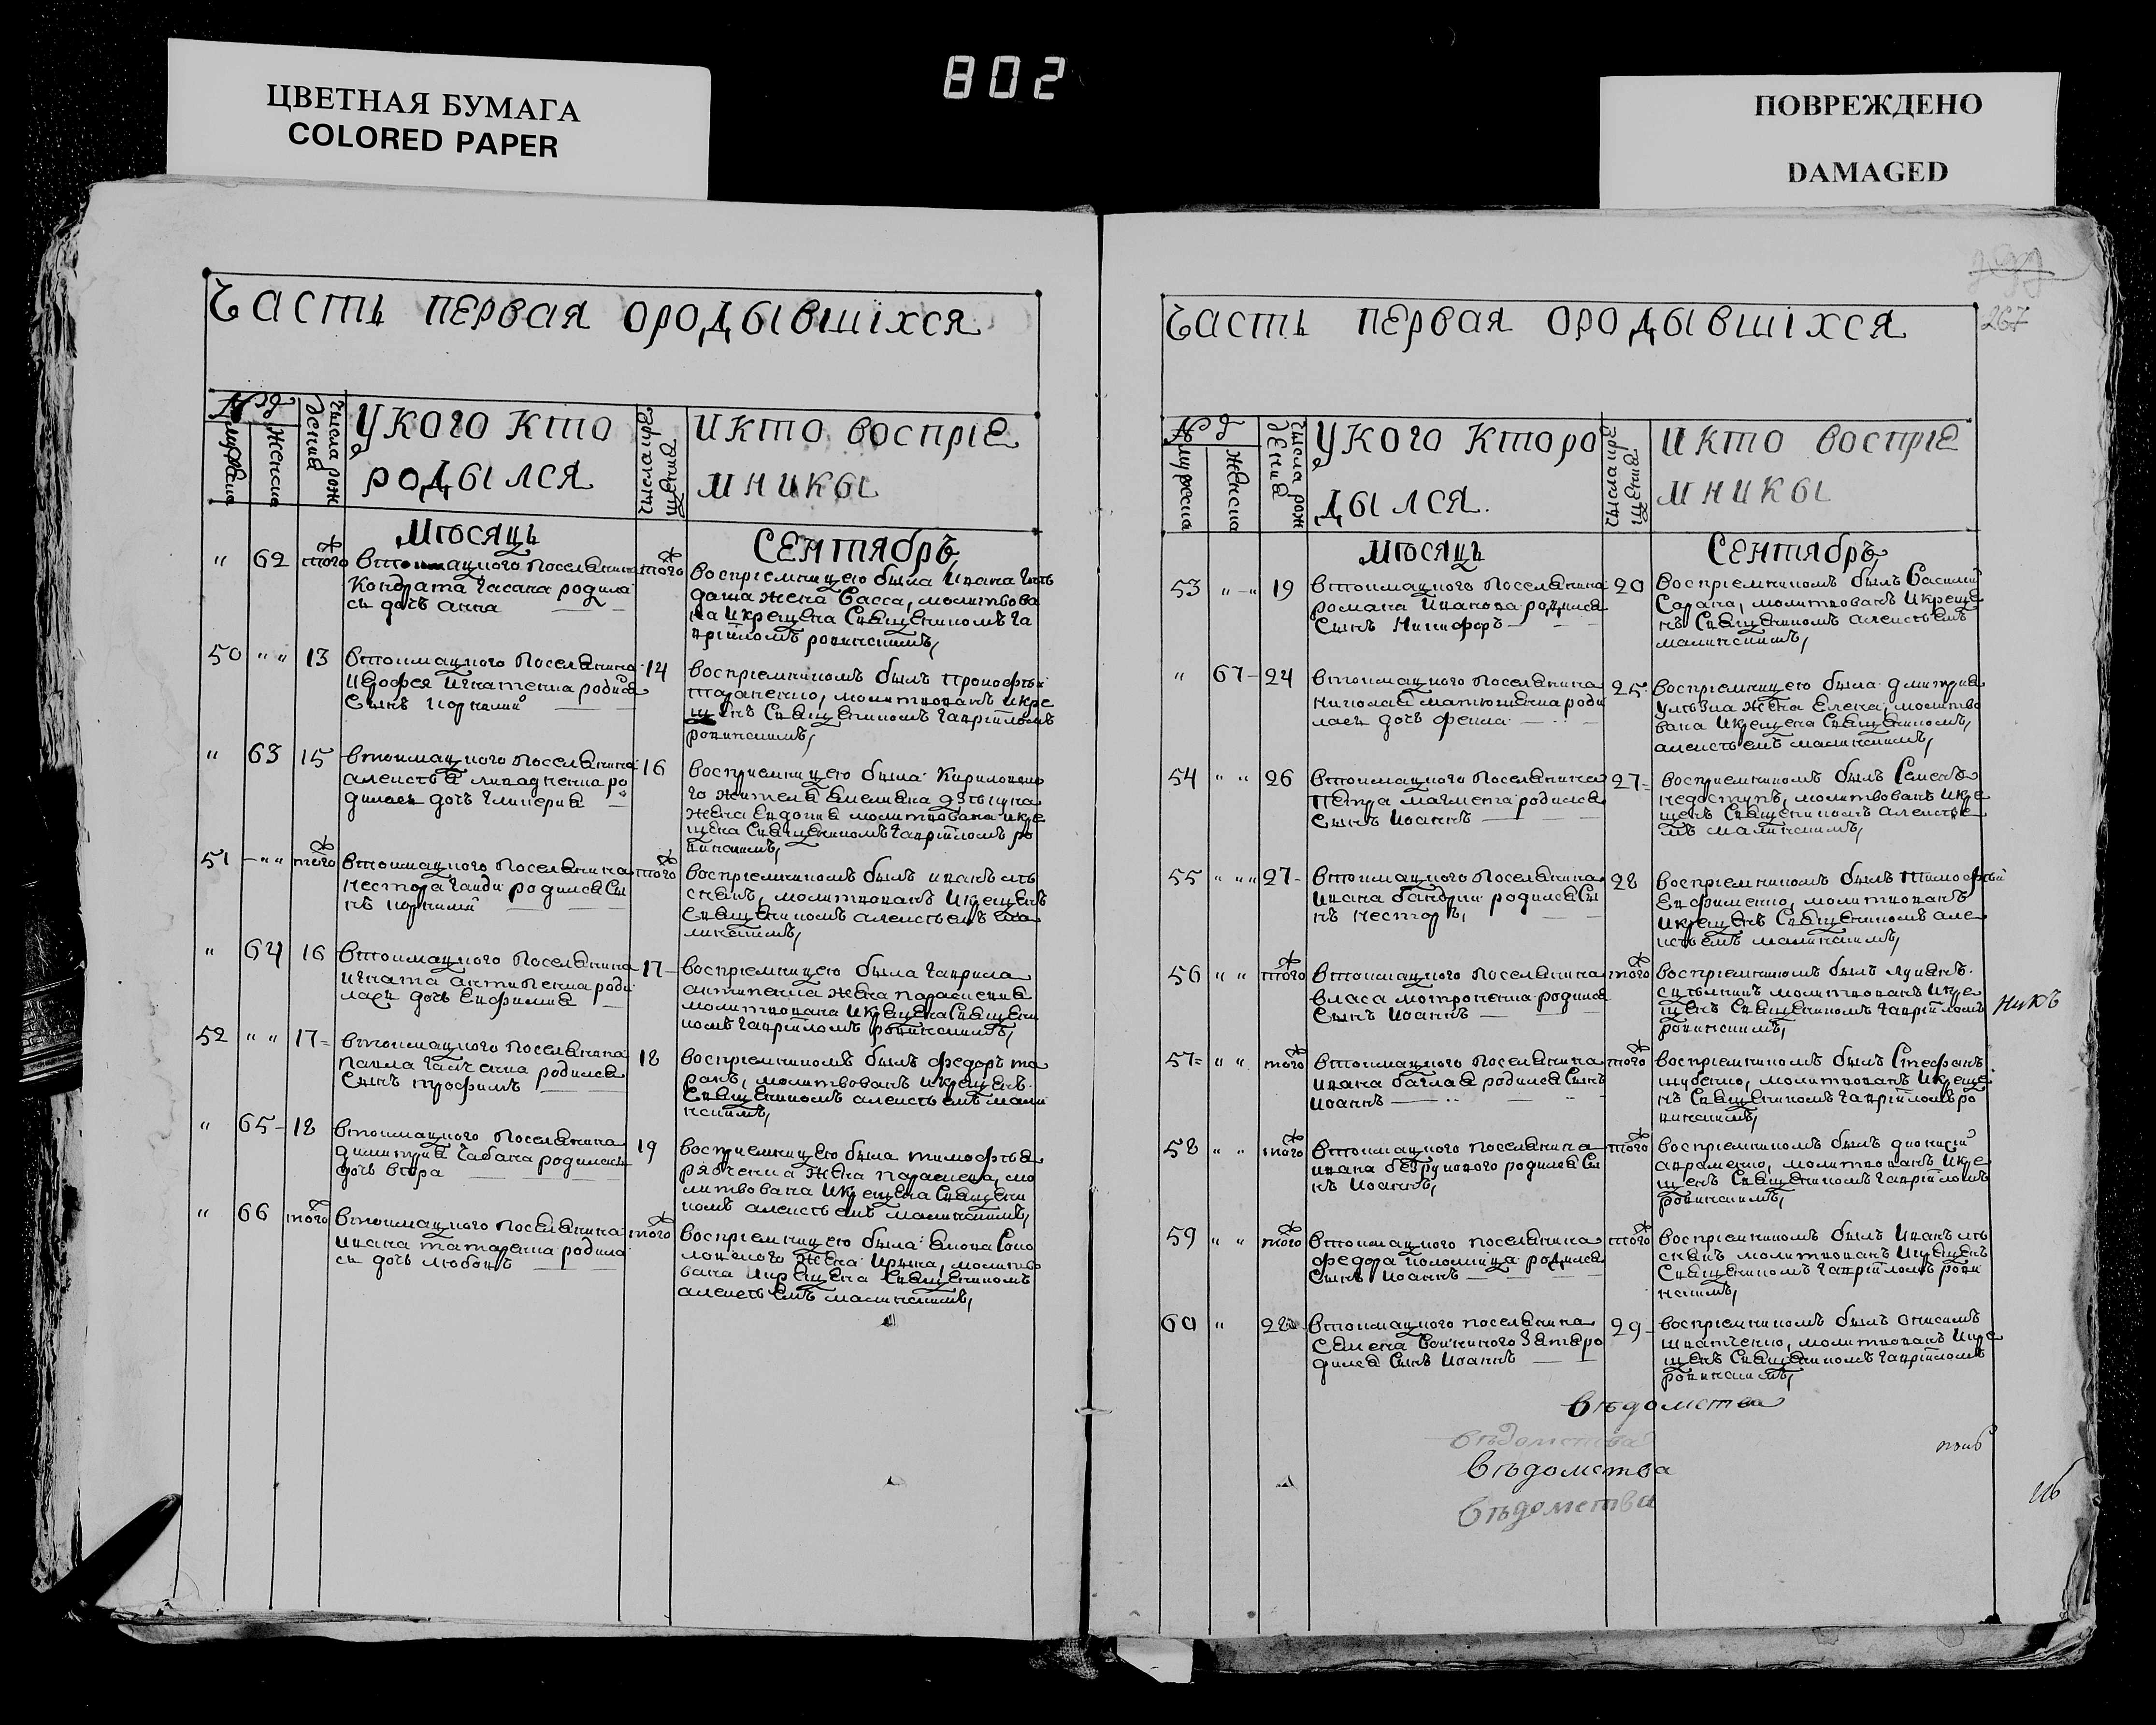 802
ЦВЕТНАЯ БУМАГА
COLORED PAPER
ПОВРЕЖДЕНО
DAMAGED
Часть первая ородывшіхся
№
мужеска
женска
числа рож
денія
Укого кто
родылся
числа кре
щенія
икто воспріе
мникы
Мѣсяць
Сентябрь
" 62 того
втоммацкого поселянина
Кондрата Часана родила
сь дочь анна
того
воспріемницею была Ивана
жена Васса, молитвова
на икрещена Священикомъ га
вріиломъ ровинскимъ,
50 " " 13
втоимацкого поселянина
Иерофея Игнатенка родился
Сынъ Корнилий
14
воспріемникомъ былъ Прокофѣй
Тараненко, молитвованъ икре
щенъ Священикомъ гавріиломъ
ровинскимъ,
" 63 15
втоимацкого поселянина
алексѣя ро
дилась дочь гликерия
16
воспріемницею была Кириловско
го жителя Амеляна
жена Евдокия молитвована икре
щена Священикомъ гавріиломъ ро
винскимъ,
51 " " того
втоимацкого поселянина
Нестора родился Сы
нъ Корнилий
того
воспріемникомъ былъ иванъ
молитвованъ икрещенъ
Священикомъ алексѣемъ ма
линскимъ,
" 64 16
втоимацкого поселянина
игната антипенка роди
лась дочь Евфимия
17
воспріемницею была гаврила
антипенка жена параскевия
молитвована икрещена Священи
комъ гавріиломъ ровинскимъ,
52 " " 17
втоимацкого поселянина
Павла родился
Сынъ трофимъ
18
воспріемникомъ былъ федоръ та
ранъ, молитвованъ икрещенъ
Священикомъ алексѣемъ мали
нскимъ,
" 65 18
втоимацкого поселянина
димитрия Чабана родилась
дочь вѣра
19
воспріемницею была тимофѣя
рябченка жена параскева, мо
литвована икрещена Священи
комъ алексѣемъ малинскимъ,
" 66 того
втоимацкого поселянина
ивана татаренка родила
сь дочь любовь
того
воспріемницею была Якова Соко
ловского жена Ирина, молитво
вана икрещена Священикомъ
алексѣемъ малинскимъ,
267
Часть первая ородывшіхся
№
мужеска
женска
числа рож
денія
Укого кторо
дылся.
числа кре
щенія
икто воспріе
мникы
Мѣсяць
Сентябрь
53 " " 19
втоимацкого поселянина
романа Иванова родился
Сынъ Никифоръ
20
воспріемникомъ былъ Василий
Сарана, молитвованъ икреще
нъ Священикомъ алексѣемъ
малинскимъ,
" 67 24
втоимацкого поселянина
Николая матюшенка роди
лась дочь фекла
25
воспріемницею была димитрия
жена Елена, молитво
вана икрещена Священикомъ,
алексѣемъ малинскимъ,
54 " " 26
втоимацкого поселянина
Петра родился
Сынъ Иоаннъ
27
воспріемникомъ былъ Семенъ
недоступъ, молитвованъ икре
щенъ Священикомъ алексѣе
мъ малинскимъ,
55 " " 27
втоимацкого поселянина
Ивана бандрки родился Сы
нъ Несторъ,
28
воспріемникомъ былъ тимофѣй
Евфименко, молитвованъ
икрещенъ Священикомъ але
ксѣемъ малинскимъ,
56 " " того
втоимацкого поселянина
власа мотроненка родился
Сынъ Иоаннъ
того
воспріемникомъ былъ лукянъ
молитвованъ икре
щенъ Священикомъ гавріиломъ
ровинскимъ,
57 " " того
втоимацкого поселянина
Ивана баглая родился Сынъ
Иоаннъ
того
воспріемникомъ былъ Стефанъ
шубенко, молитвованъ икреще
нъ Священикомъ гавріиломъ ро
винскимъ,
58 " " того
втоимацкого поселянина
ивана безрукового родился Сы
нъ Иоаннъ,
того
воспріемникомъ былъ дионисий
авраменко, молитвованъ икре
щенъ Священикомъ гавріиломъ
ровинскимъ,
59 " " того
втоимацкого поселянина
федора коломийца родился
Сынъ Иоаннъ
того
воспріемникомъ былъ Иванъ
молитвованъ икрещенъ
Священикомъ гавріиломъ рови
нскимъ,
60 " 28
втоимацкого поселянина
Семена Зятя ро
дился Сынъ Иоаннъ
29
воспріемникомъ былъ Онисимъ
молитвованъ икре
щенъ Священикомъ гавріиломъ
ровинскимъ,
вѣдомства
вѣдомства
вѣдомства
вѣдомства